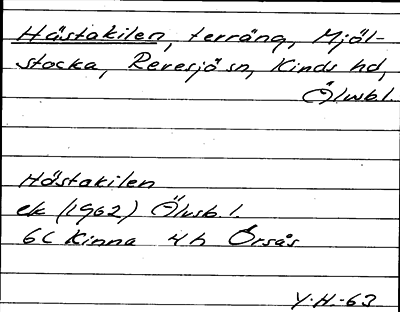 Hästakilen, terräng, Mjöl-
stocka, Revesjö sn, Kinds hd,
Älvsbl.
Hästakilen
ek (1962) Älvsb. l.
6C Kinna 4h Örsås
Y.H.-63